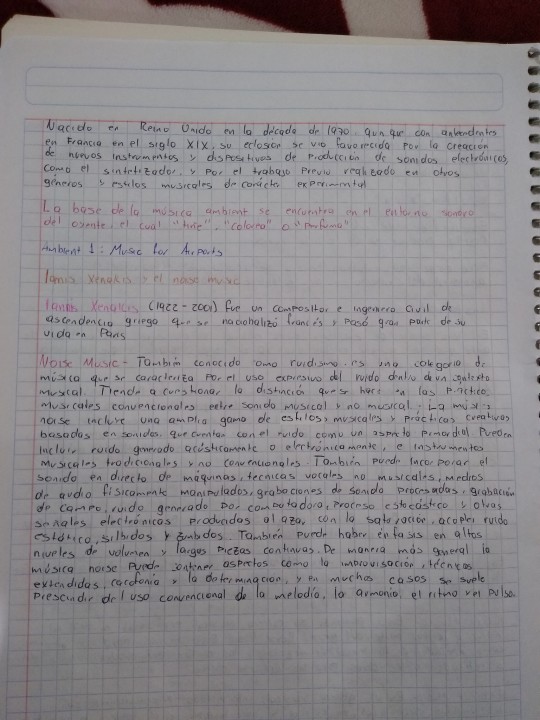 Nacido en Reino Unido en la década de 1970 aunque con antecedentes
en Francia en el siglo XIX, su eclosión se vio favorecida por la creación
de nuevos instrumentos y dispositivos de producción de sonidos electrónicos,
como el sintetizador, y por el trabajo previo realizado en otros
géneros y estilos musicales de carácter experimental
La base de la música ambient se encuentra en el entorno sonoro
del oyente el cual "tiñe", "colorea" o "perfuma"
Ambient 1: Music for Airports
Iannis Xenakis y el noise music
Iannis Xenakis (1922-2001) fue un compositor e ingeniero civil de
ascendencia griega que se nacionalizó francés y pasó gran parte de su
vida en Paris
Noise Music - También conocido como ruidismo, es una categoría de
música que se caracteriza por el uso expresivo del ruido dentro de un contexto
musical Tiende a cuestionar la distinción que se hace en las práctica
musicales convencionales entre sonido musical y no musical. La música
noise incluye una amplia gama de estilos musicales y prácticas creativas
basadas en sonidos, que cuentan con el ruido como un aspecto primordial Pueden
incluir ruido generado acústicamente o electrónicamente, e instrumentos
musicales tradicionales y no convencionales. También puede incorporar el
sonido en directo de máquinas, técnicas vocales no musicales, medios
de audio físicamente manipulados, grabaciones de sonido procesadas, grabación
de campo, ruido generado por computadora, proceso estocástico y otras
señales electrónicas producidas al azar, con la saturación, acoples ruido
estático, silbidos y zumbidos. También puede haber énfasis en altos
niveles de volumen y largas piezas continuas. De manera más general la
música noise puede contener aspectos como la improvisación, técnicas
extendidas, cacofonía y la determinación, y en muchos casos se suele
prescindir del uso convencional de la melodía, la armonía, el ritmo y el pulso